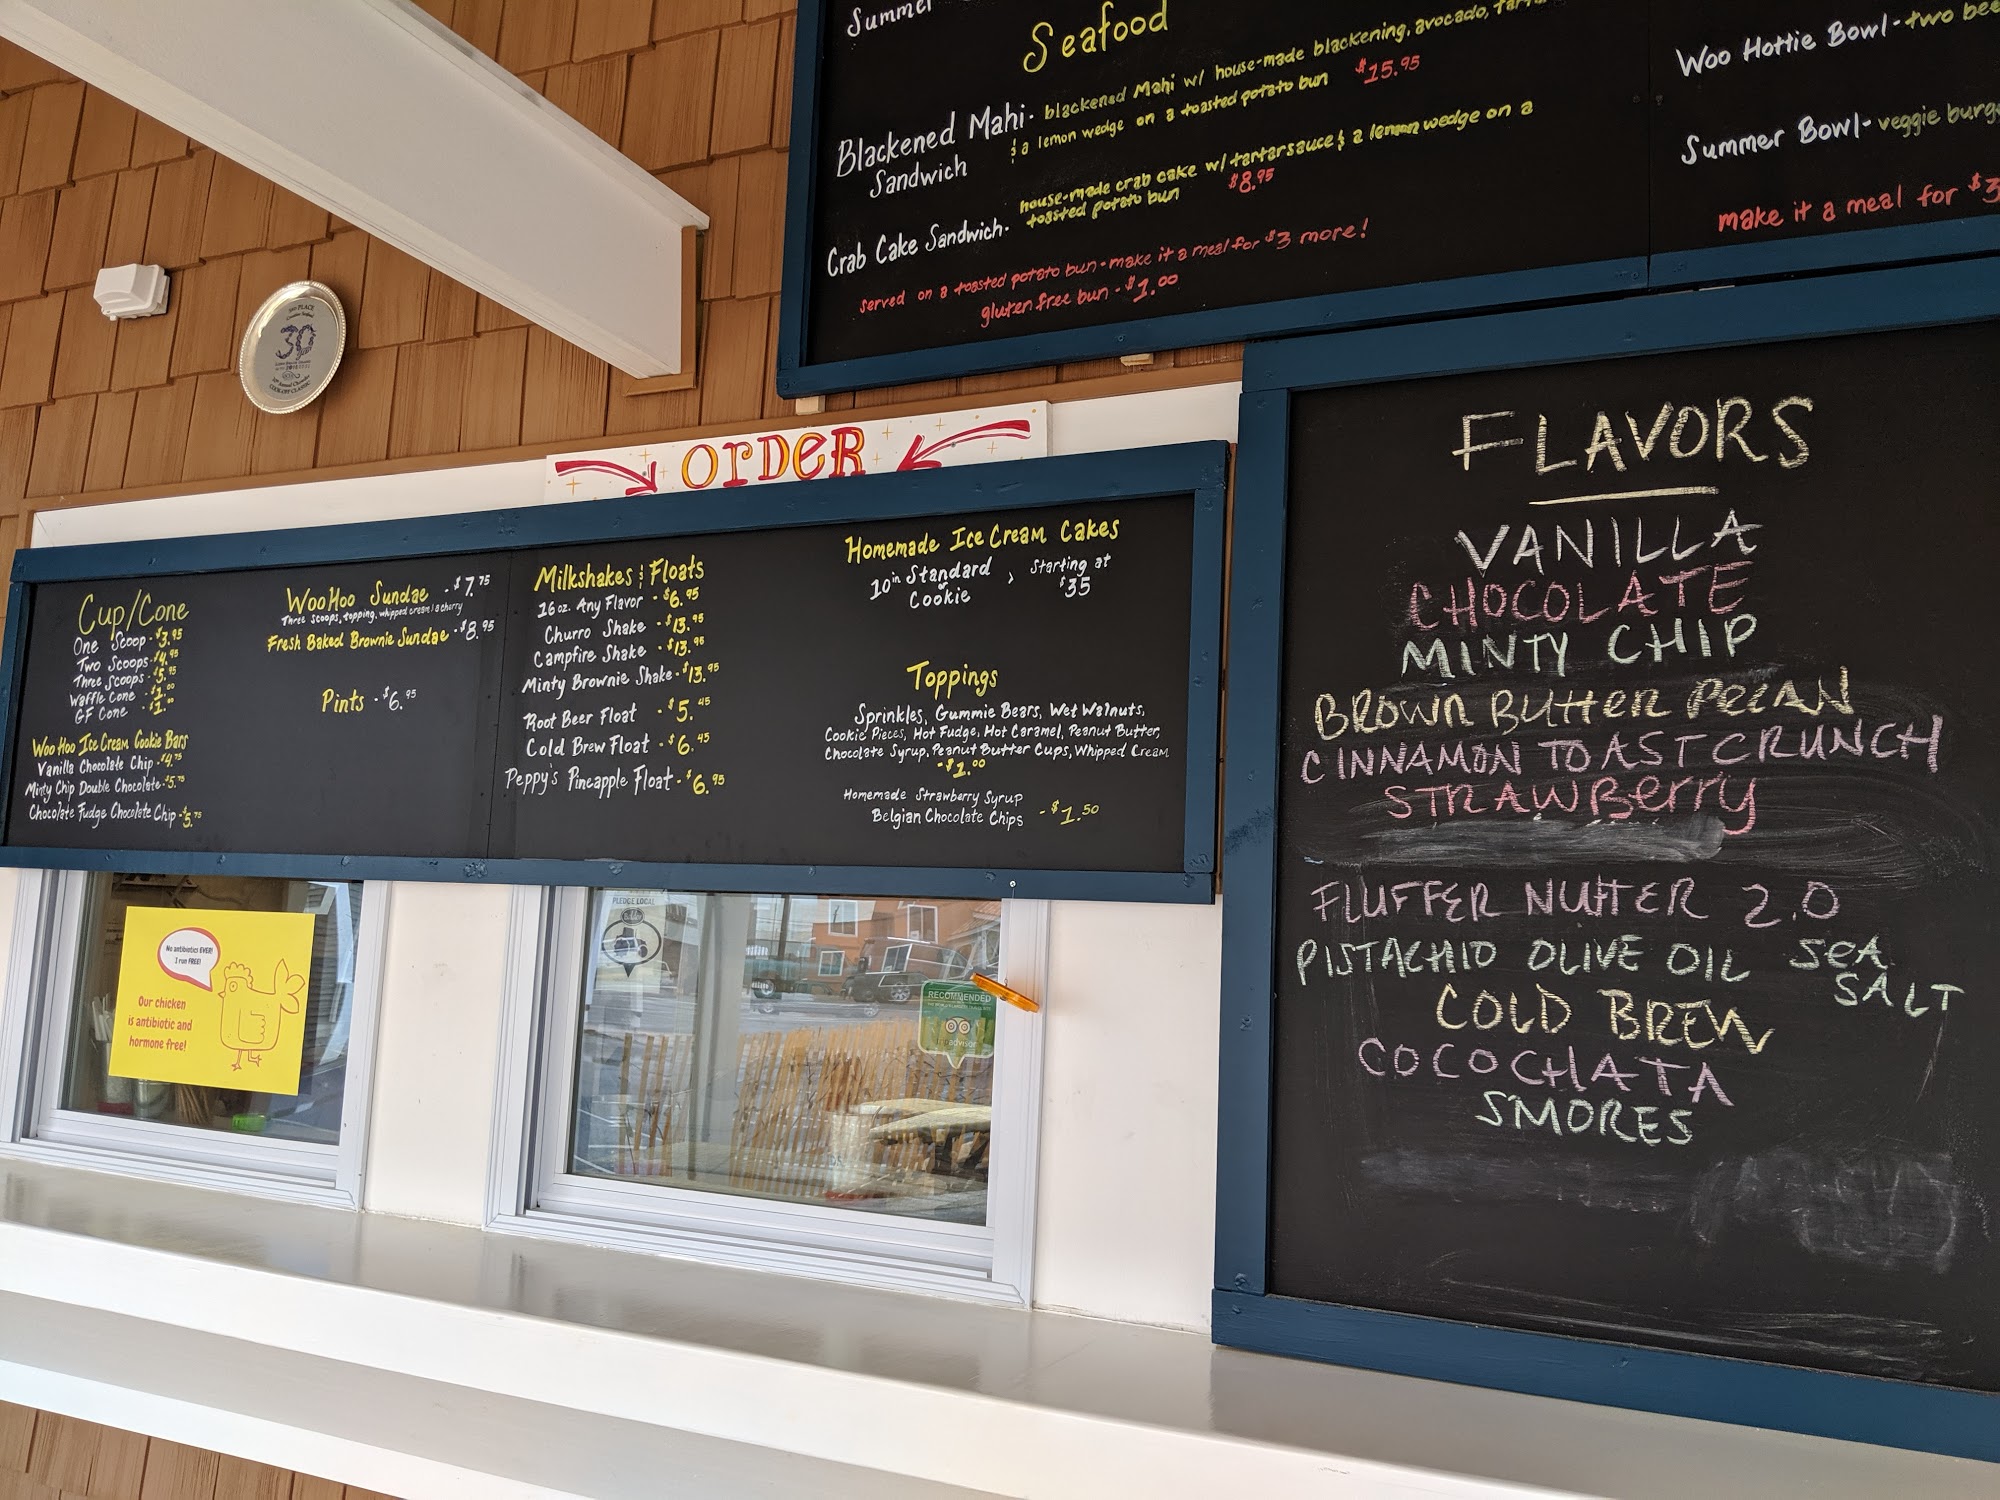 Summer
Seafood
Blackened Mahi · blackened Mahi w/ house-made blackening, avocado,
Sandwich
& a lemon wedge on a toasted potato bun $15.95
Crab Cake Sandwich · house-made crab cake w/ tartar sauce & a lemon wedge on a
toasted potato bun $8.95
served on a toasted potato bun - make it a meal for $3 more!
gluten free bun - $1.00
Woo Hottie Bowl - two
Summer Bowl - veggie
make it a meal for $3
30
COOK-OFF CLASSIC
ORDER
Cup/Cone
One Scoop - $3.95
Two Scoops - $4.95
Three Scoops - $5.95
Waffle Cone - $1.00
GF Cone - $1.00
Woo Hoo Ice Cream Cookie Bars
Vanilla Chocolate Chip - $4.75
Minty Chip Double Chocolate - $5.75
Chocolate Fudge Chocolate Chip - $5.75
Woo Hoo Sundae - $7.75
Three scoops, topping, whipped cream & a cherry
Fresh Baked Brownie Sundae - $8.95
Pints - $6.95
Milkshakes & Floats
16 oz. Any Flavor - $6.95
Churro Shake - $13.95
Campfire Shake - $13.95
Minty Brownie Shake - $13.95
Root Beer Float - $5.45
Cold Brew Float - $6.45
Peppy's Pineapple Float - $6.95
Homemade Ice Cream Cakes
10in Standard or Cookie > Starting at $35
Toppings
Sprinkles, Gummie Bears, Wet Walnuts,
Cookie Pieces, Hot Fudge, Hot Caramel, Peanut Butter,
Chocolate Syrup, Peanut Butter Cups, Whipped Cream
- $1.00
Homemade Strawberry Syrup
Belgian Chocolate Chips - $1.50
FLAVORS
VANILLA
CHOCOLATE
MINTY CHIP
BROWN BUTTER PECAN
CINNAMON TOAST CRUNCH
STRAWBerry
FLUFFER NUTTER 2.0
PISTACHIO OLIVE OIL SEA
SALT
COLD BREW
COCOCHATA
SMORES
No antibiotics EVER!
I run FREE!
Our chicken
is antibiotic and
hormone free!
PLEDGE LOCAL
RECOMMENDED
advisor